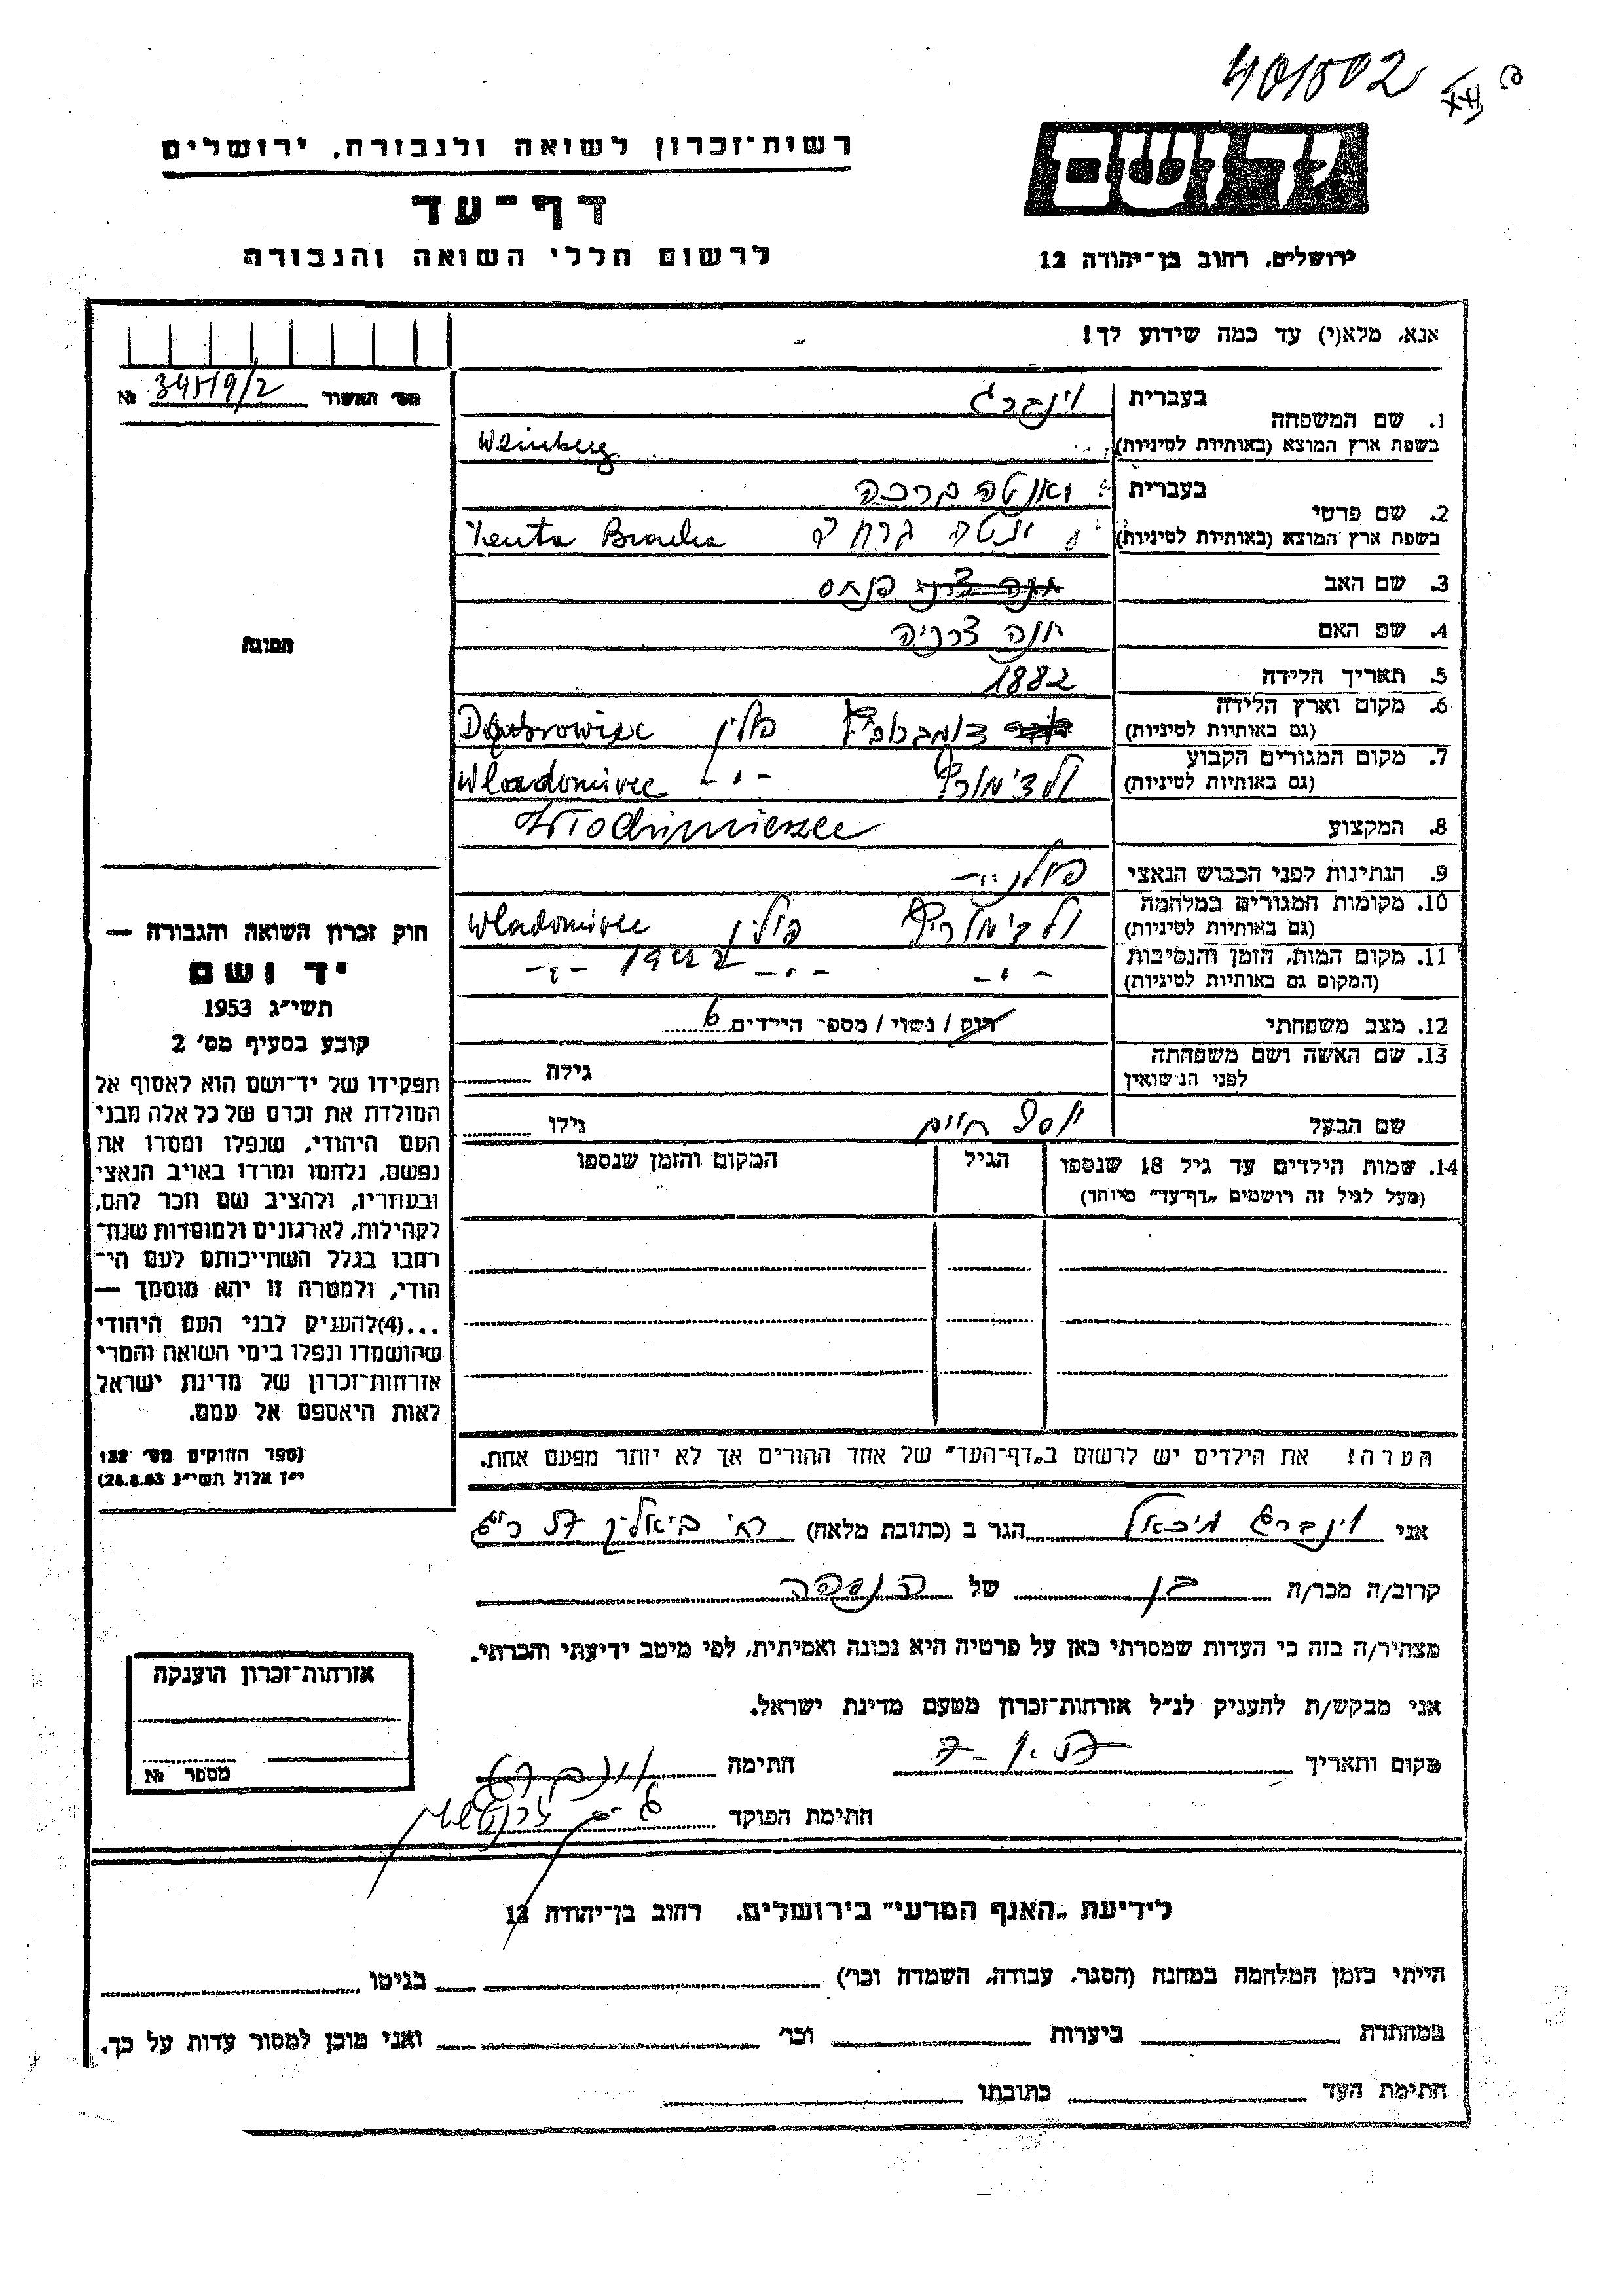 401502
רשות־זכרון לשואה ולגבורה, ירושלים
דף־עד
לרשום חללי השואה והגבורה
יד ושם
ירושלים, רחוב בן־יהודה 12
אנא, מלא(י) עד כמה שידוע לך!
מס' האשור 34519/2 №
1. שם המשפחה
בעברית וינברג
בשפת ארץ המוצא (באותיות לטיניות) Weinberg
2. שם פרטי
בעברית ברכה
בשפת ארץ המוצא (באותיות לטיניות) Yenta Bracha
3. שם האב פנחס
4. שם האם חנה
5. תאריך הלידה 1882
6. מקום וארץ הלידה
(גם באותיות לטיניות) פולין
7. מקום המגורים הקבוע
(גם באותיות לטיניות) Wladomirec
8. המקצוע
9. הנתינות לפני הכבוש הנאצי
10. מקומות המגורים במלחמה
(גם באותיות לטיניות) פולין Wladomirec
11. מקום המות, הזמן והנסיבות
(המקום גם באותיות לטיניות) 1942
12. מצב משפחתי רווק / נשוי / מספר הילדים 6
13. שם האשה ושם משפחתה
לפני הנישואין גילה
שם הבעל יוסף חיים גילו
14. שמות הילדים עד גיל 18 שנספו
(מעל לגיל זה רושמים „דף־עד" מיוחד)
הגיל
המקום והזמן שנספו
הערה! את הילדים יש לרשום ב„דף־העד" של אחד ההורים אך לא יותר מפעם אחת.
תמונה
חוק זכרון השואה והגבורה —
יד ושם
תשי"ג 1953
קובע בסעיף מס' 2
תפקידו של יד־ושם הוא לאסוף אל
המולדת את זכרם של כל אלה מבני
העם היהודי, שנפלו ומסרו את
נפשם, נלחמו ומרדו באויב הנאצי
ובעוזריו, ולהציב שם וזכר להם,
לקהילות, לארגונים ולמוסדות שנח־
רבו בגלל השתייכותם לעם הי־
הודי, ולמטרה זו יהא מוסמך —
...(4)להעניק לבני העם היהודי
שהושמדו ונפלו בימי השואה והמרי
אזרחות־זכרון של מדינת ישראל
לאות היאספם אל עמם.
(ספר החוקים מס' 132
י"ז אלול תשי"ג 28.8.53)
אני וינברג מיכאל הגר ב (כתובת מלאה) רח' ביאליק
קרוב/ה מכר/ה בן של הנספה
מצהיר/ה בזה כי העדות שמסרתי כאן על פרטיה היא נכונה ואמיתית, לפי מיטב ידיעתי והכרתי.
אני מבקש/ת להעניק לנ"ל אזרחות־זכרון מטעם מדינת ישראל.
מקום ותאריך חתימה
חתימת הפוקד
אזרחות־זכרון הוענקה
מספר №
לידיעת „האגף המדעי" בירושלים, רחוב בן־יהודה 12
הייתי בזמן המלחמה במחנה (הסגר, עבודה, השמדה וכו') בגיטו
במחתרת ביערות וכו' ואני מוכן למסור עדות על כך.
חתימת העד כתובתו